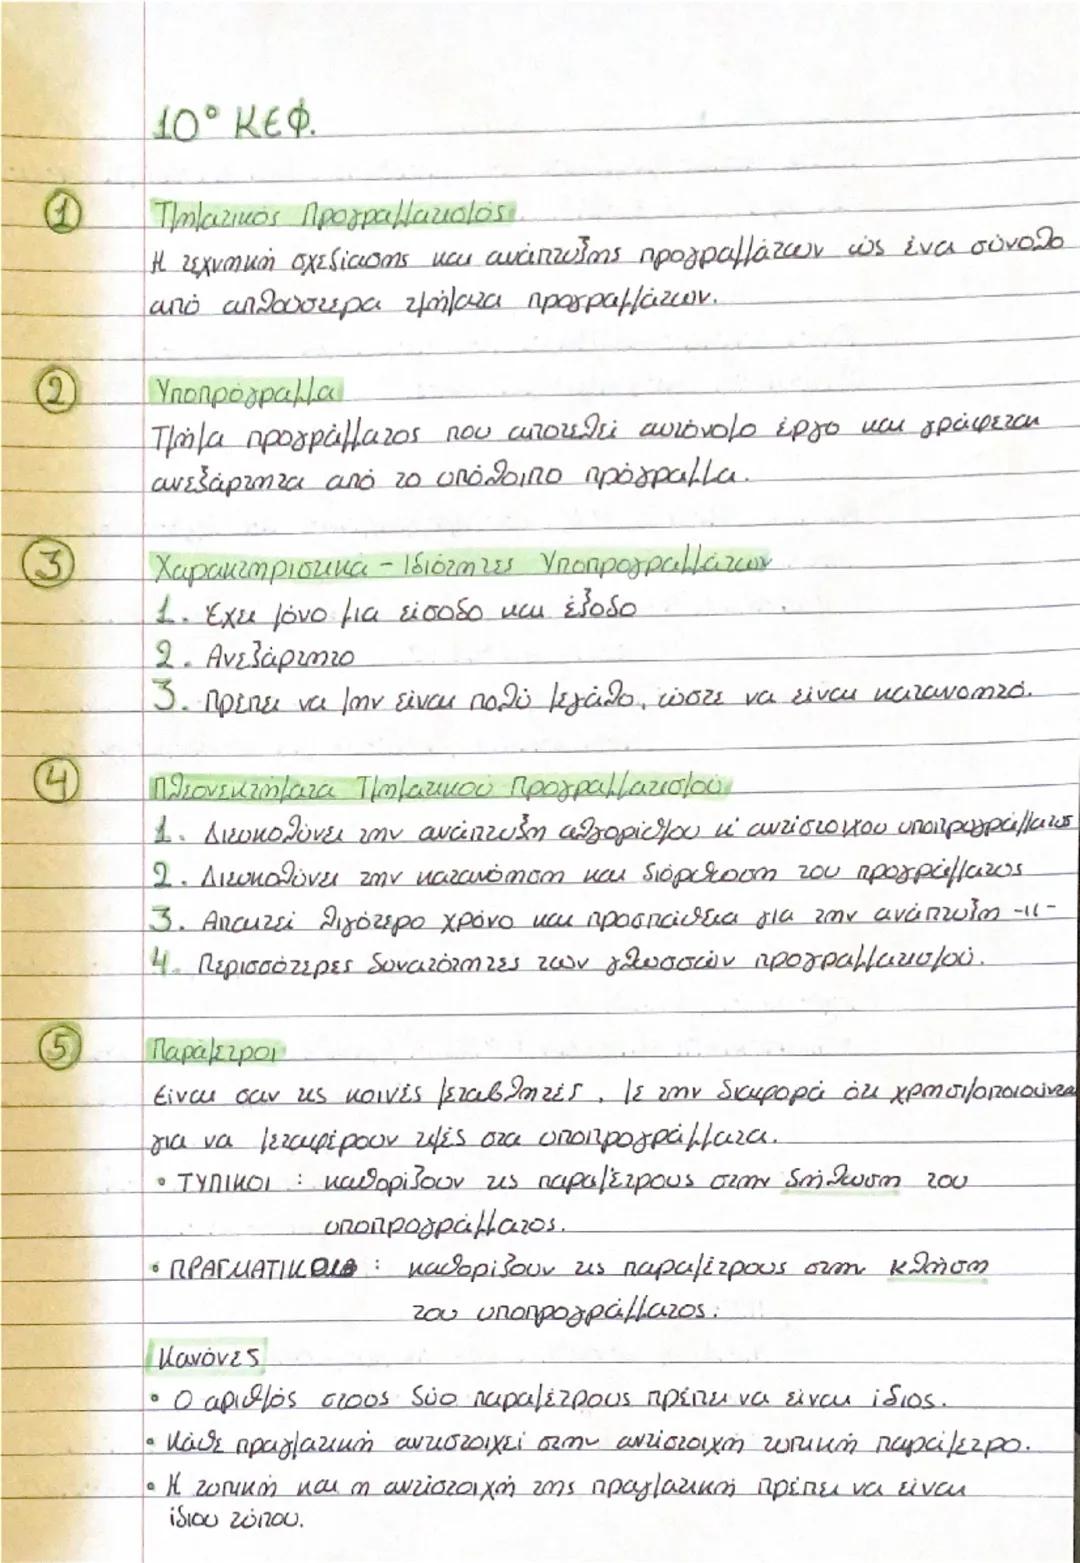 10° ΚΕΦ.
① Τμηματικός Προγραμματισμός
Η τεχνική σχεδίασης και ανάπτυξης προγραμμάτων ως ένα σύνολο
από απλούστερα τμήματα προγραμμάτων.
② Υποπρόγραμμα
Τμήμα προγράμματος που αποτελεί αυτόνομο έργο και γράφεται
ανεξάρτητα από το υπόλοιπο πρόγραμμα.
③ Χαρακτηριστικά - Ιδιότητες Υποπρογραμμάτων
1. Έχει μόνο μια είσοδο και έξοδο
2. Ανεξάρτητο
3. Πρέπει να μην είναι πολύ μεγάλο, ώστε να είναι κατανοητό.
④ Πλεονεκτήματα Τμηματικού Προγραμματισμού
1. Διευκολύνει την ανάπτυξη αλγορίθμου κι αντίστοιχου υποπρογράμματος
2. Διευκολύνει την κατανόηση και διόρθωση του προγράμματος
3. Απαιτεί λιγότερο χρόνο και προσπάθεια για την ανάπτυξη -||-
4. Περισσότερες δυνατότητες των γλωσσών προγραμματισμού.
⑤ Παράμετροι
Είναι σαν τις κοινές μεταβλητές, με την διαφορά ότι χρησιμοποιούνται
για να μεταφέρουν τιμές στα υποπρογράμματα.
• ΤΥΠΙΚΟΙ : καθορίζουν τις παραμέτρους στην δήλωση του
υποπρογράμματος.
• ΠΡΑΓΜΑΤΙΚΟΙ : καθορίζουν τις παραμέτρους στην κλήση
του υποπρογράμματος.
Κανόνες
• Ο αριθμός στους δύο παραμέτρους πρέπει να είναι ίδιος.
• Κάθε πραγματική αντιστοιχεί στην αντίστοιχη τυπική παράμετρο.
• Η τυπική και η αντίστοιχή της πραγματική πρέπει να είναι
ίδιου τύπου.